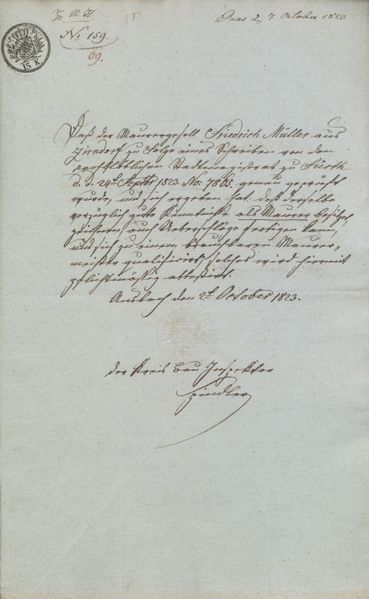 No. 159.
69.
15 K
7 October 1823
Daß der Maurergesell Friedrich Müller aus
Zirndorf zu Folge eines Schreiben von dem
Stadtmagistrat zu Fürth
d. d. 24t Septbr 1823. No: 7813. genau geprüft
wurde, und sich ergeben hat, daß derselbe
vorzüglich gute Kenntnisse als Maurer besitzt,
auch Ueberschläge fertigen kann,
und sich zu einem brauchbaren Maurer-
meister qualifizirt, solches wird hiermit
pflichtmäßig attestirt.
Ansbach den 2t October 1823.
der Kreis Bau Inspektor